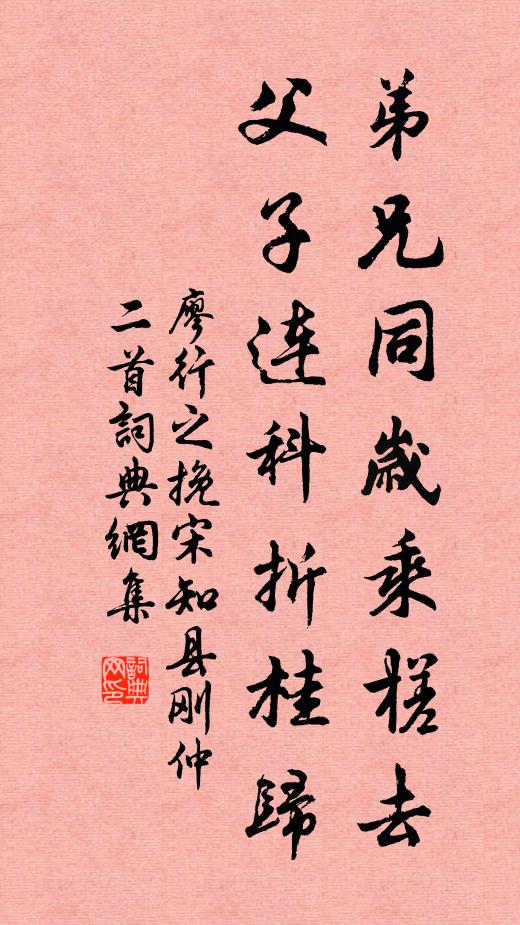 弟兄同歲乘槎去
父子連科折桂歸
廖行之挽宋知县刚仲
二首詞典網集
詞典网印